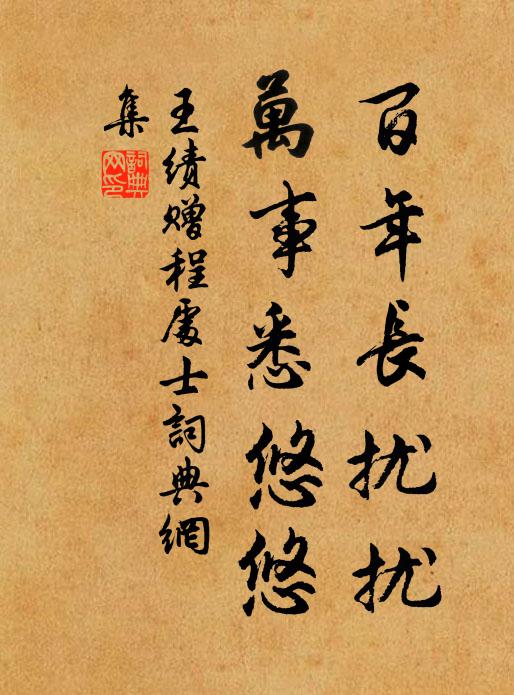 百年长扰扰
萬事悉悠悠
王绩赠程處士詞典網
集
詞典网印